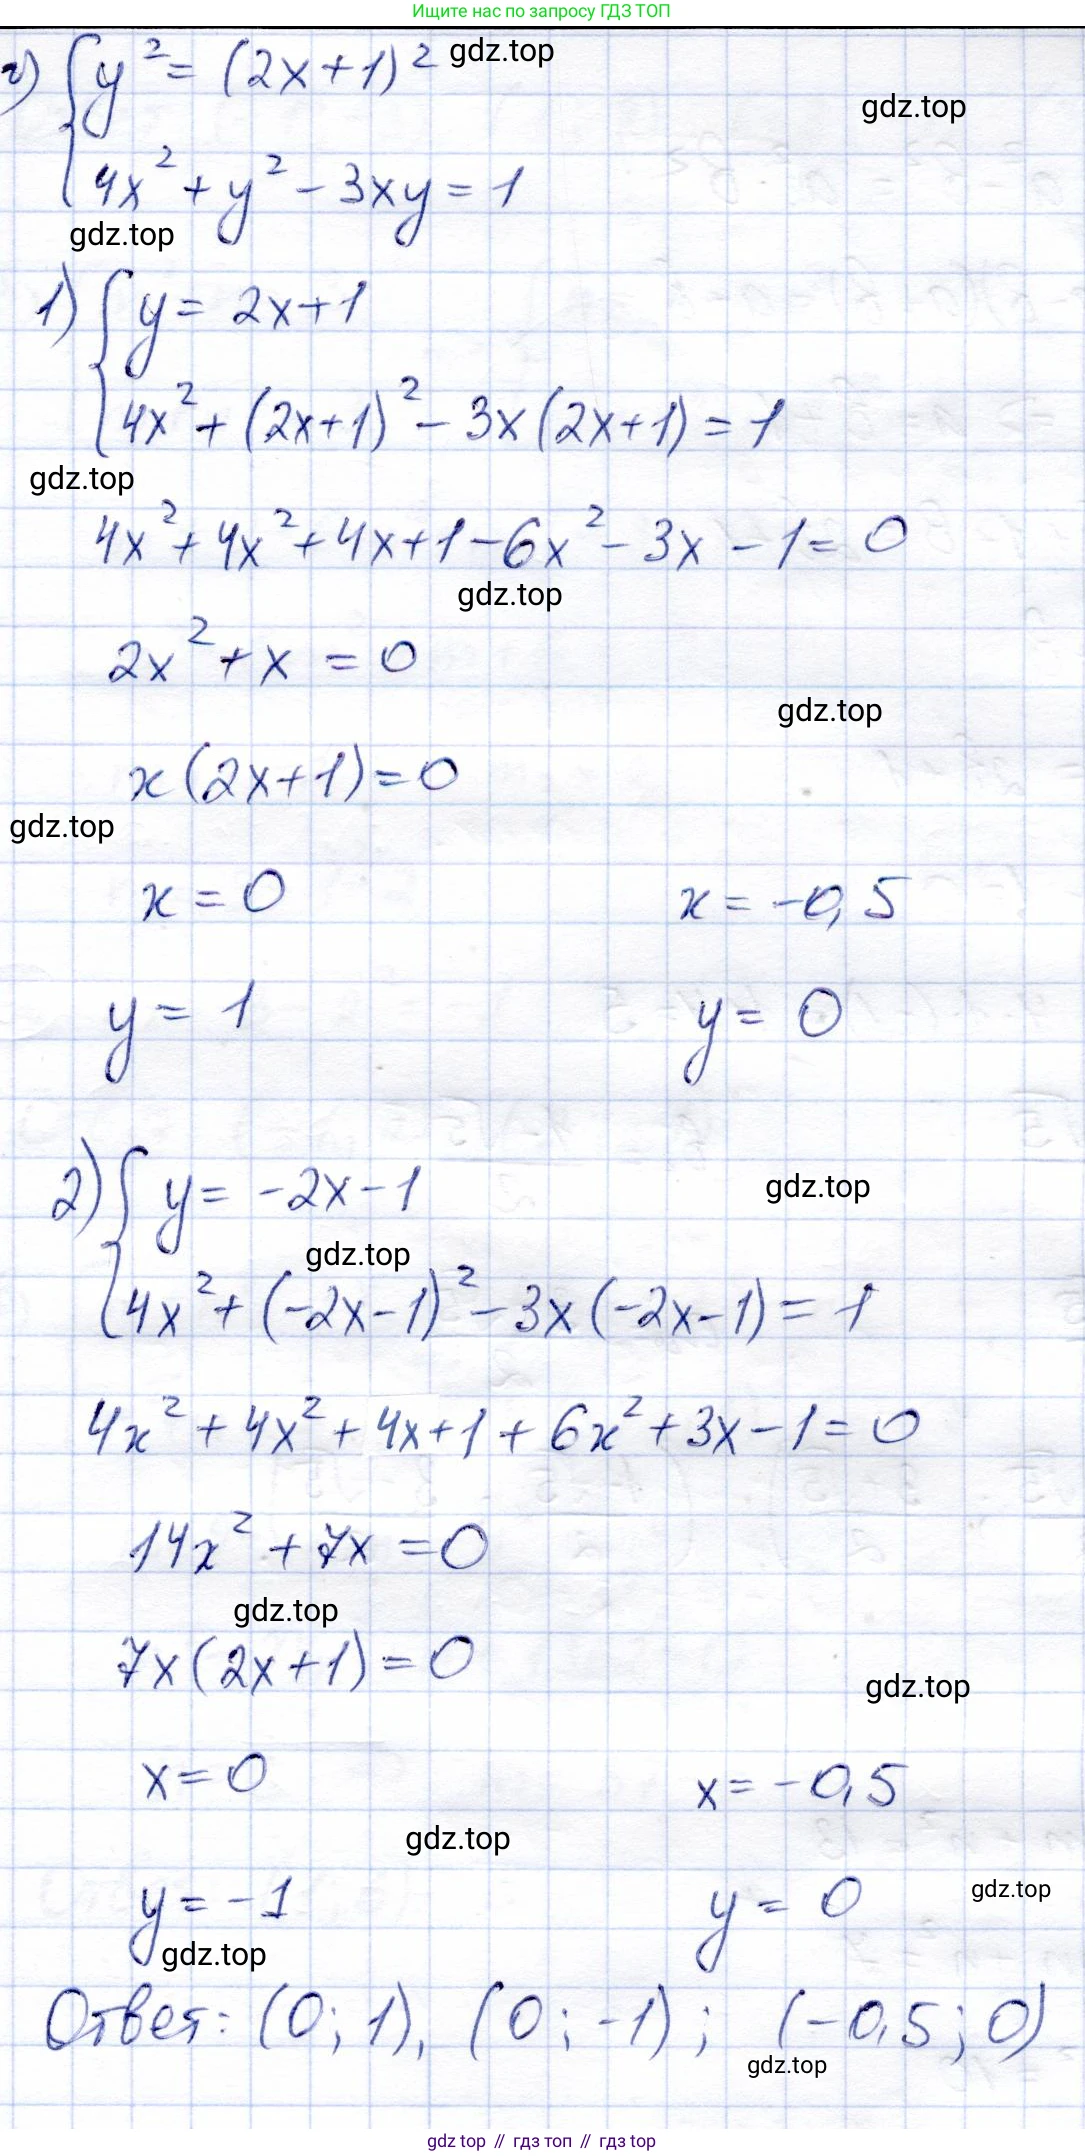 Ищите нас по запросу ГДЗ ТОП
г) { y² = (2x+1)² gdz.top
gdz.top
4x² + y² - 3xy = 1
gdz.top
1) { y = 2x+1
4x² + (2x+1)² - 3x(2x+1) = 1
gdz.top
4x² + 4x² + 4x + 1 - 6x² - 3x - 1 = 0
gdz.top
2x² + x = 0
gdz.top
x(2x+1) = 0
gdz.top
x = 0 x = -0,5
y = 1 y = 0
2) { y = -2x-1 gdz.top
gdz.top
4x² + (-2x-1)² - 3x(-2x-1) = 1
4x² + 4x² + 4x+1 + 6x² + 3x - 1 = 0
14x² + 7x = 0
gdz.top
7x(2x+1) = 0
gdz.top
x = 0 x = -0,5
gdz.top
y = -1 y = 0 gdz.top
gdz.top
Ответ: (0; 1), (0; -1); (-0,5; 0)
gdz.top
gdz top // гдз топ // gdz top